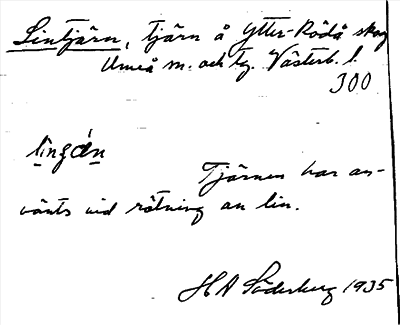 Lintjärn, tjärn å Ytter-Rödå skog
Umeå m. och tg. Västerb. l.
300
lingǻn
Tjärnen har an-
vänts vid rötning av lin.
H A Söderberg 1935